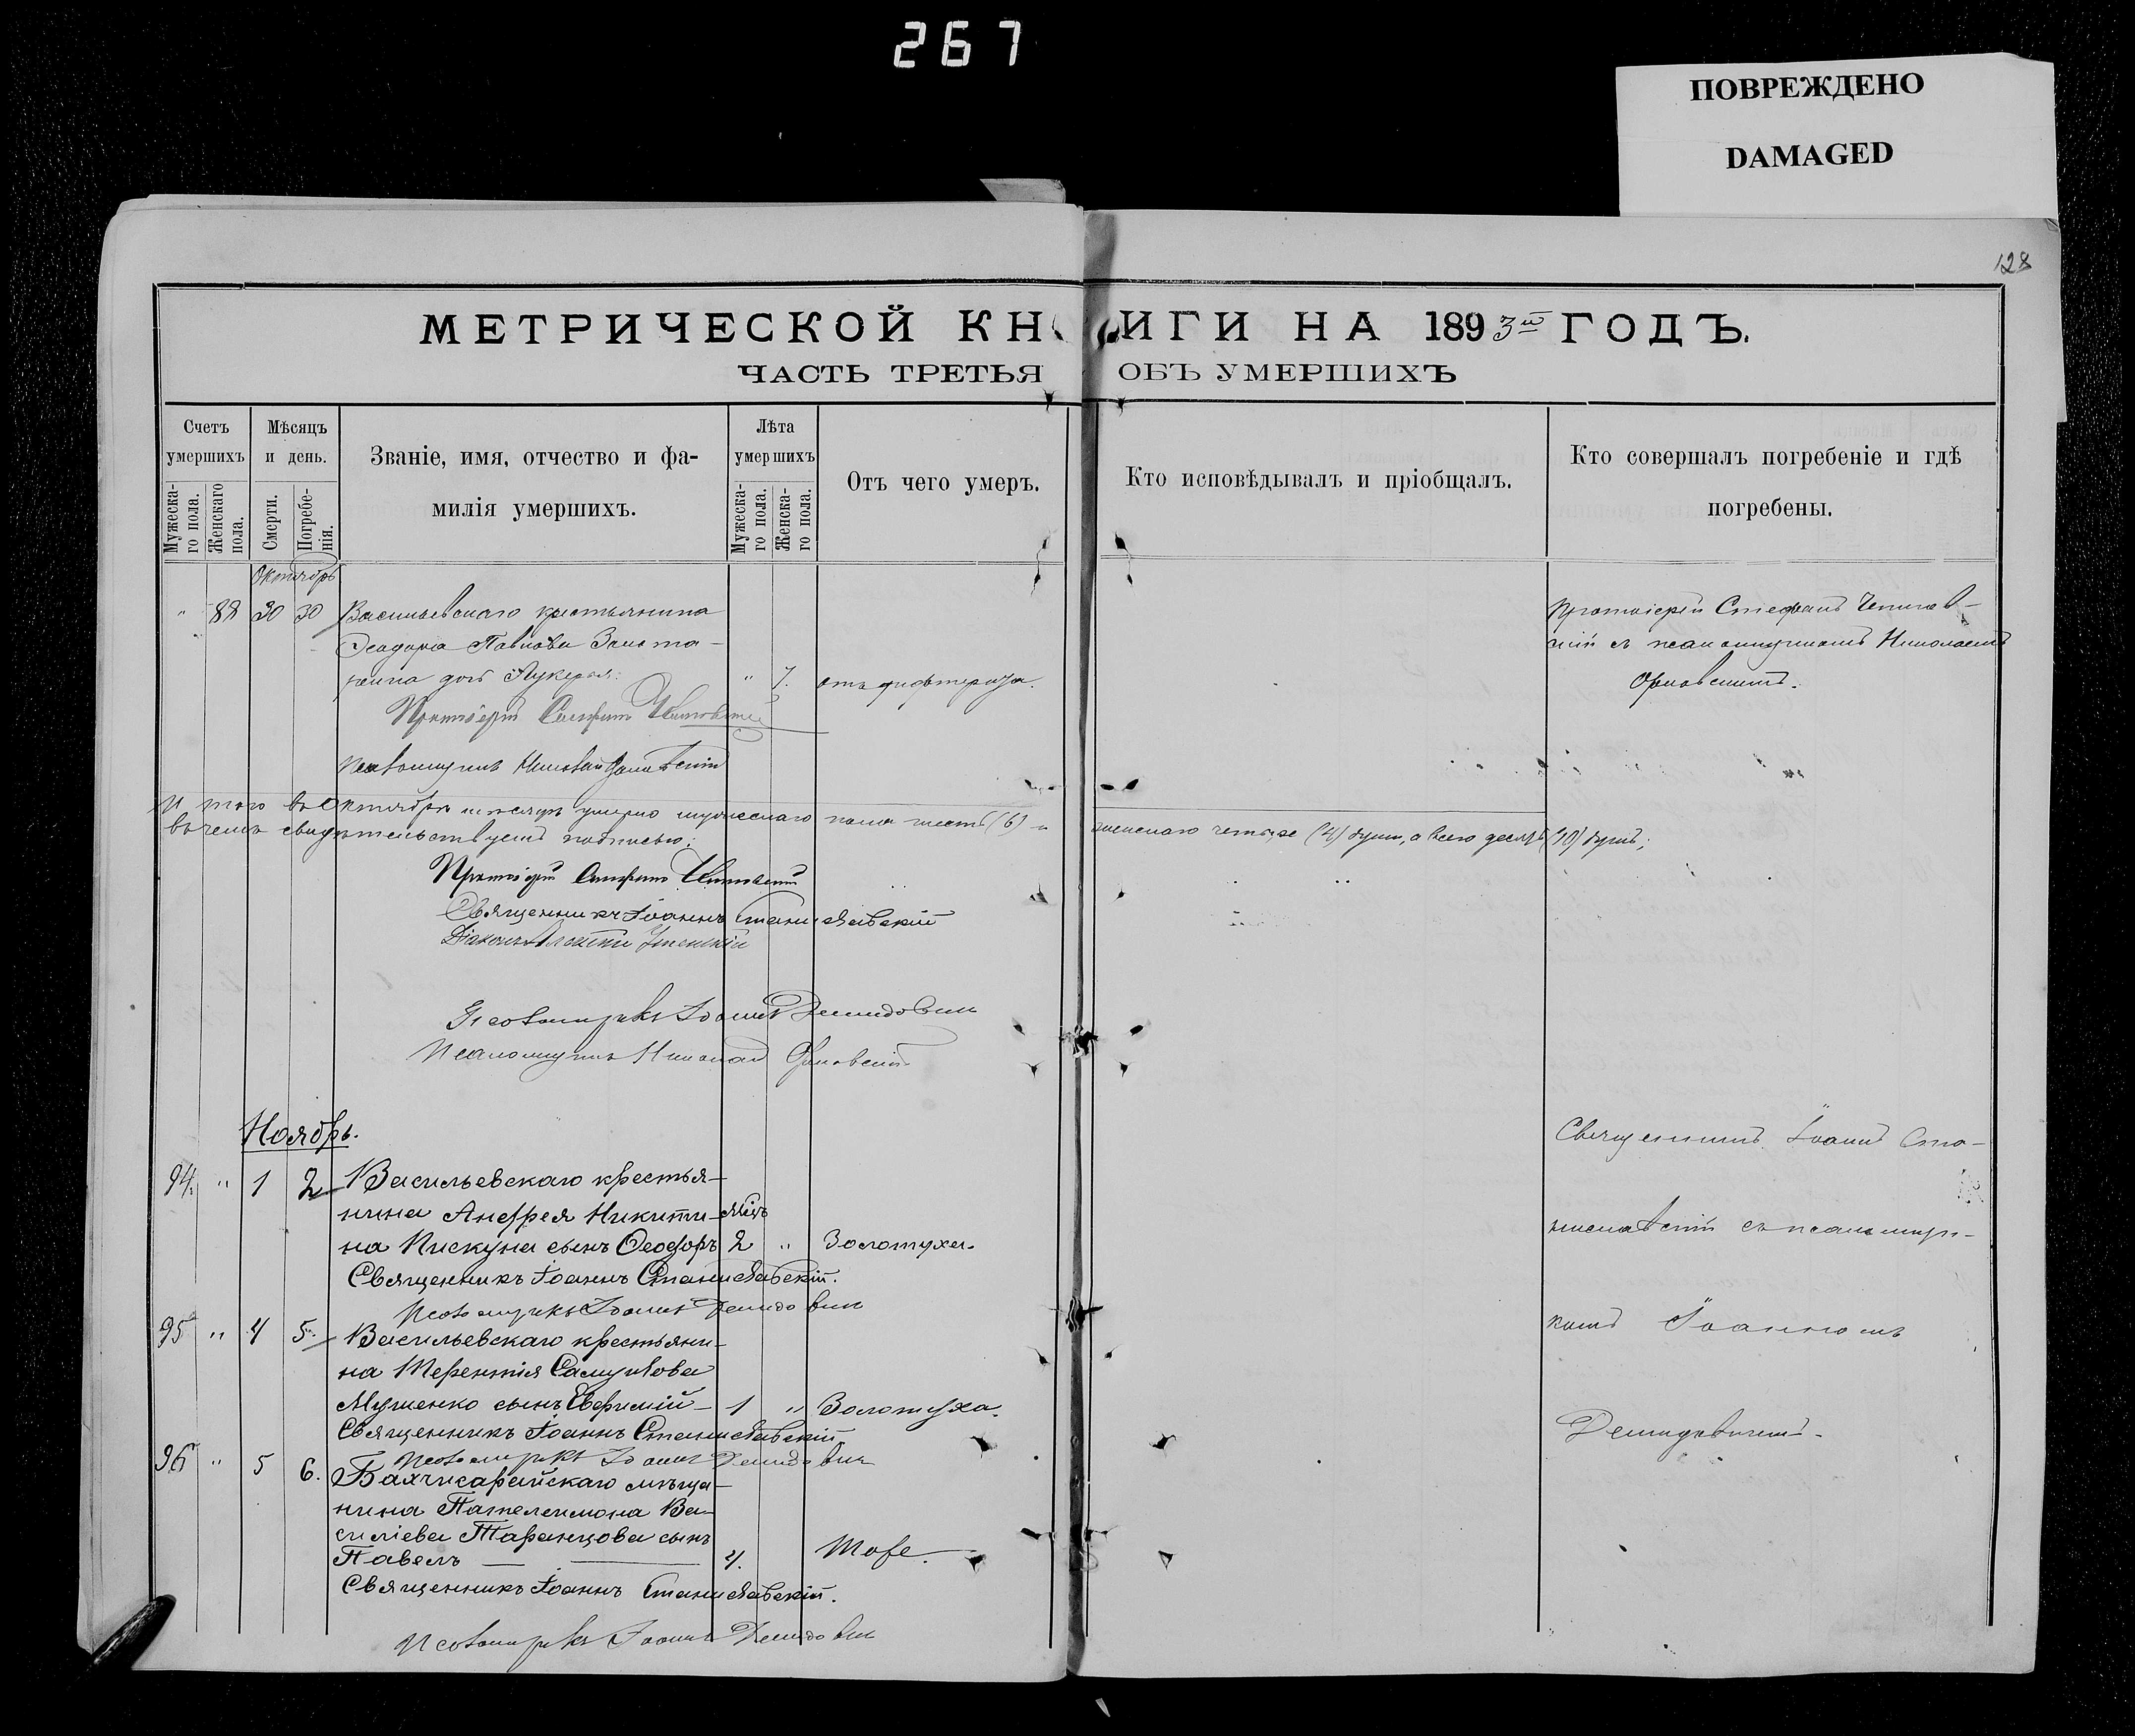 267
ПОВРЕЖДЕНО
DAMAGED
128
МЕТРИЧЕСКОЙ КНИГИ НА 1893й ГОДЪ.
ЧАСТЬ ТРЕТЬЯ ОБЪ УМЕРШИХЪ
Счетъ умершихъ
Мужеска-го пола.
Женскаго пола.
Мѣсяцъ и день.
Смерти.
Погребе-нія.
Званіе, имя, отчество и фа-
милія умершихъ.
Лѣта умершихъ
Мужеска-го пола.
Женска-го пола.
Отъ чего умеръ.
Кто исповѣдывалъ и пріобщалъ.
Кто совершалъ погребеніе и гдѣ
погребены.
Октябрь
" 88 30 30 Васильевскаго крестьянина
Ѳеодора Павлова
дочь Лукерья " 7. отъ дифтерита.
Протоіерей Стефанъ
съ псаломщикомъ Николаемъ
Орловскимъ.
Протоіерей Стефанъ
Псаломщикъ Николай Орловскій
Итого въ Октябрѣ мѣсяцѣ умерло мужескаго пола шесть (6) и женскаго четыре (4) души, а всего десять (10) душъ;
въ чемъ свидѣтельствуемъ подписью:
Протоіерей Стефанъ
Священникъ Іоаннъ Станиславскій
Діаконъ
Псаломщикъ Іоаннъ Демидович
Псаломщикъ Николай Орловскій
Ноябрь.
94. " 1 2 Васильевскаго крестья-
нина Андрея Никити- мѣц
на Пискуна сынъ Ѳеодоръ 2 " Золотуха.
Священникъ Іоаннъ Станиславскій.
Псаломщикъ Іоаннъ Демидович
95 " 4 5. Васильевскаго крестьяни-
на Терентія Самуилова
сынъ Евфимій - 1 " Золотуха.
Священникъ Іоаннъ Станиславскій
Псаломщикъ Іоаннъ Демидович
96 " 5 6. Бахчисарайскаго мѣща-
нина Пателеимона Ва-
силіева Таранцова сынъ
Павелъ 4. Тоже.
Священникъ Іоаннъ Станиславскій.
Псаломщикъ Іоаннъ Демидович
Священникъ Іоаннъ Ста-
ниславскій съ псаломщи-
комъ Іоанномъ
Демидовичемъ.